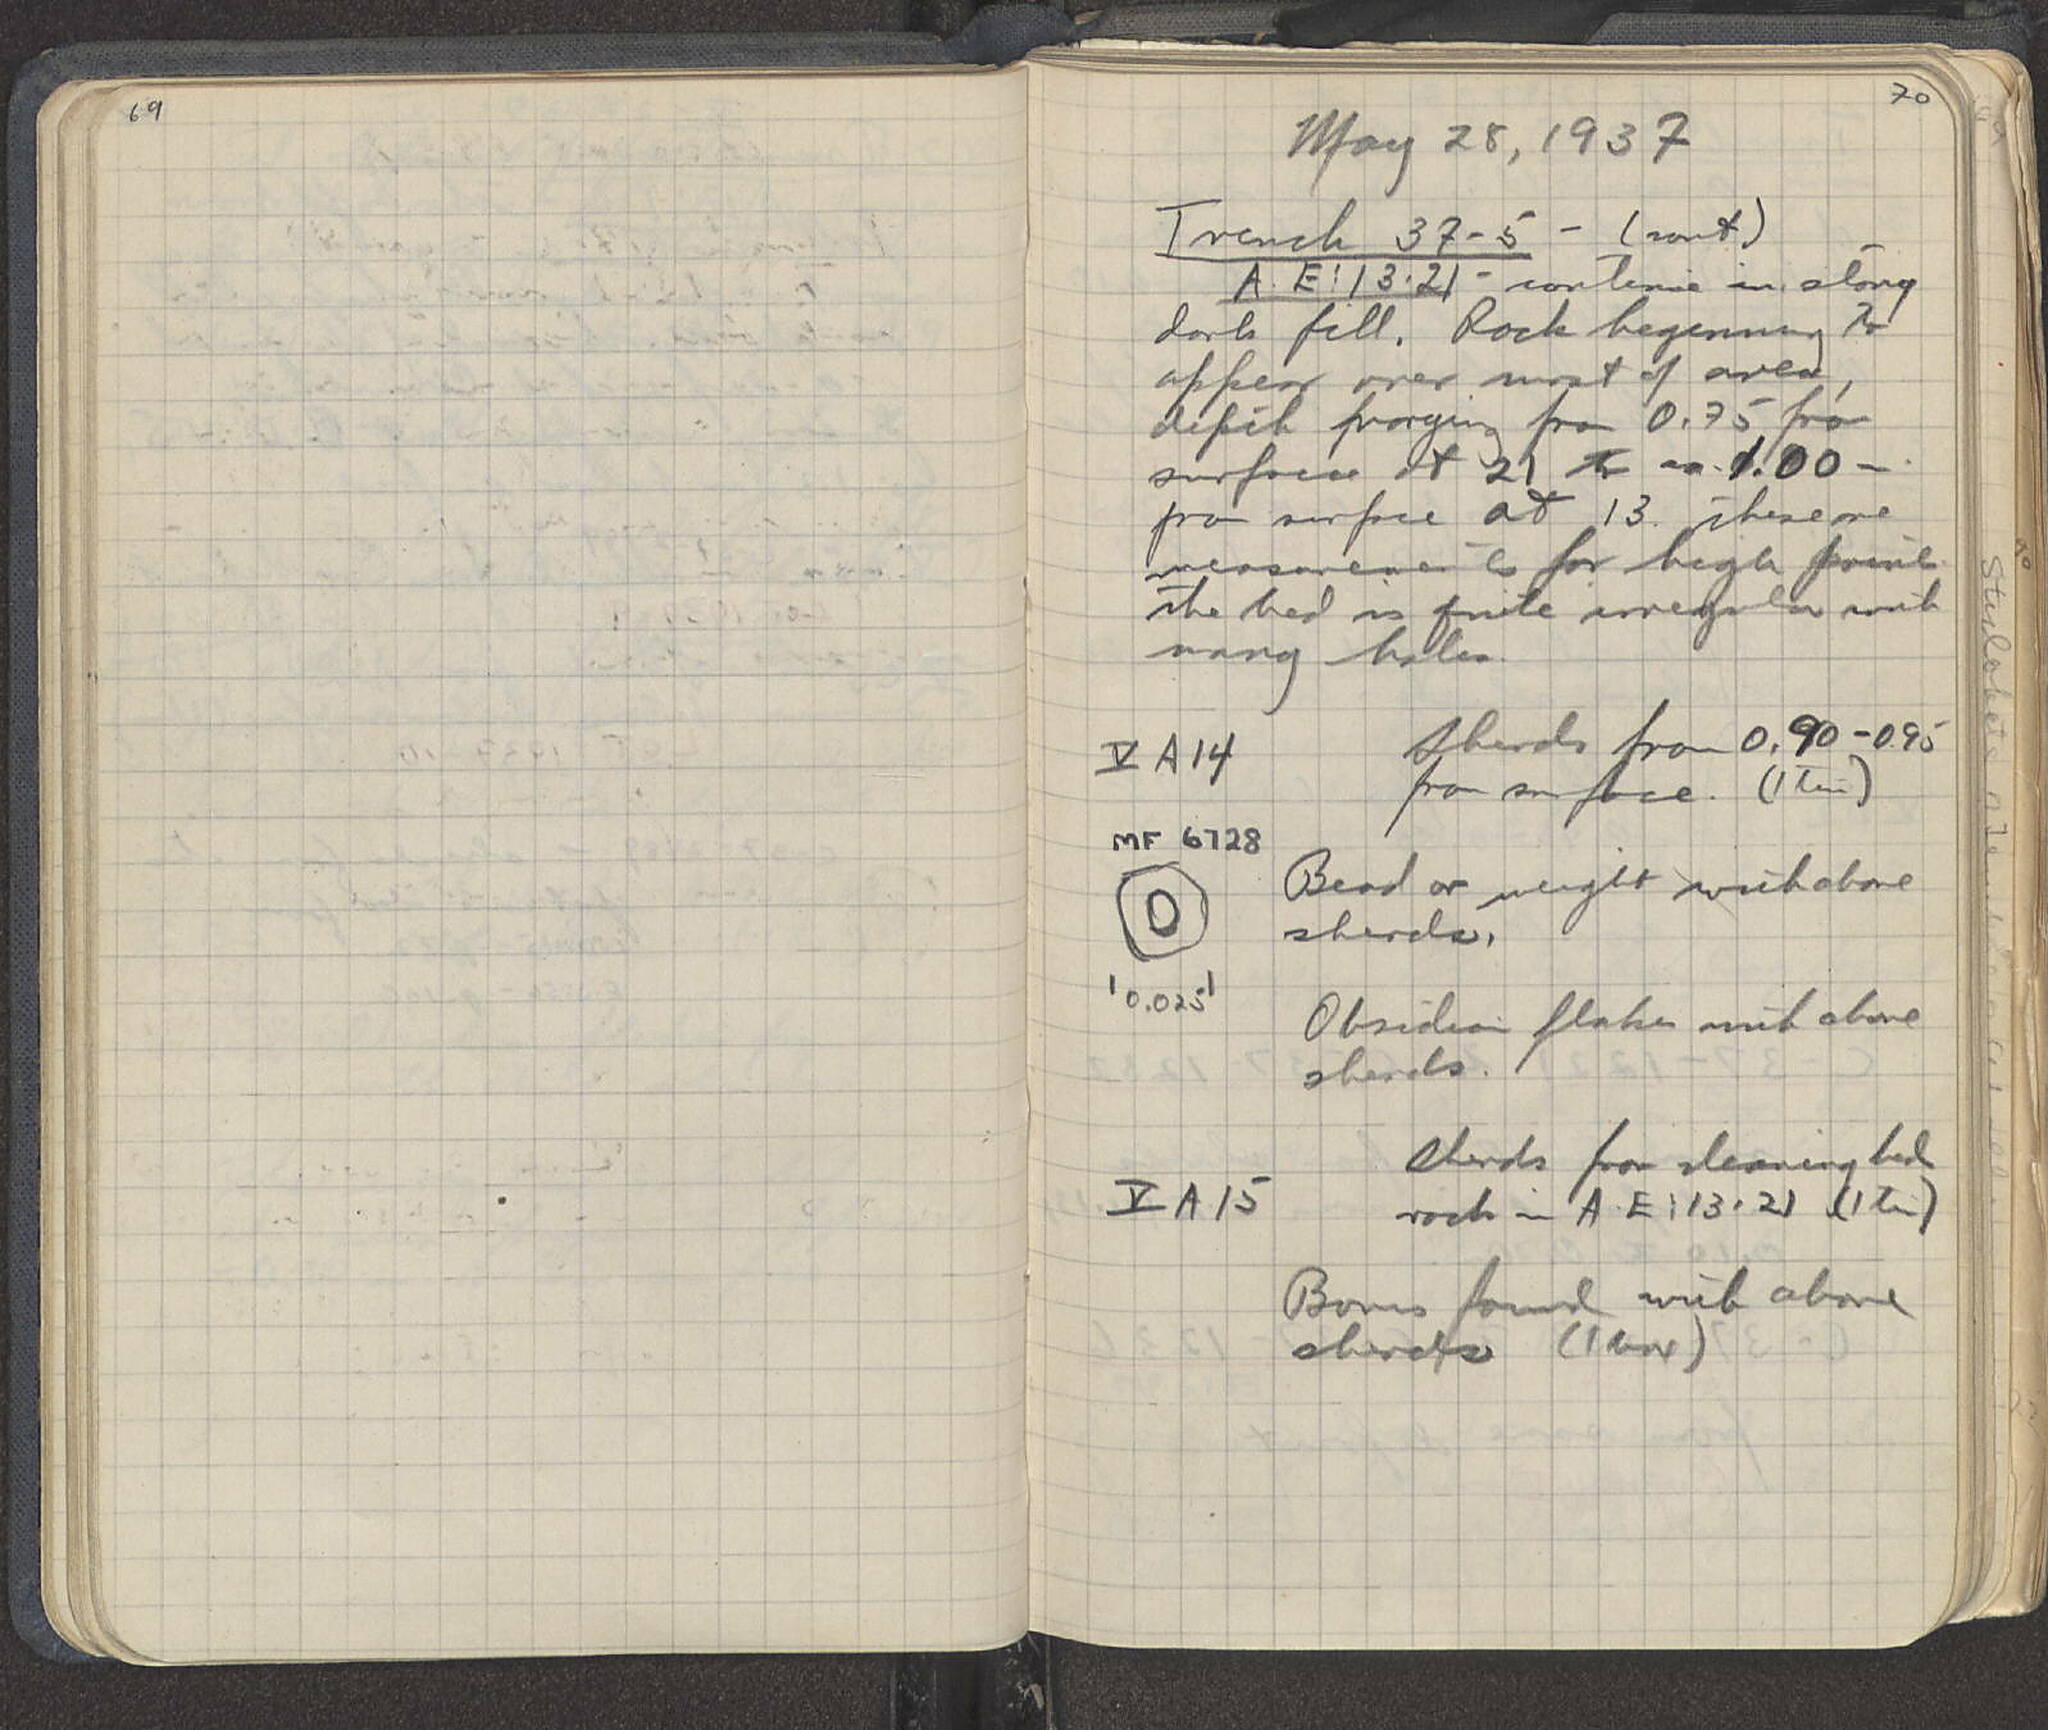 69
70
May 28, 1937
Trench 37-5 - (cont.)
A.E:13.21 - continue in stony
dark fill. Rock beginning to
appear over most of area,
depth from 0.75 from
surface at 21 to ca. 1.00 -
from surface at 13. These are
measurements for high points
the bed is quite irregular with
many holes.
V A14
Sherds from 0.90-0.95
from surface. (1 tin)
MF 6728
Bead or weight with above
sherds.
0.025
Obsidian flakes with above
sherds.
Sherds from cleaning bed
V A15
rock in A.E:13.21 (1 tin)
Bones found with above
sherds (1 box)